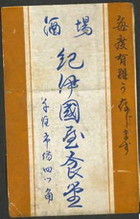 毎度有難う存じます
酒場
紀伊國屋食堂
千住市場四つ角